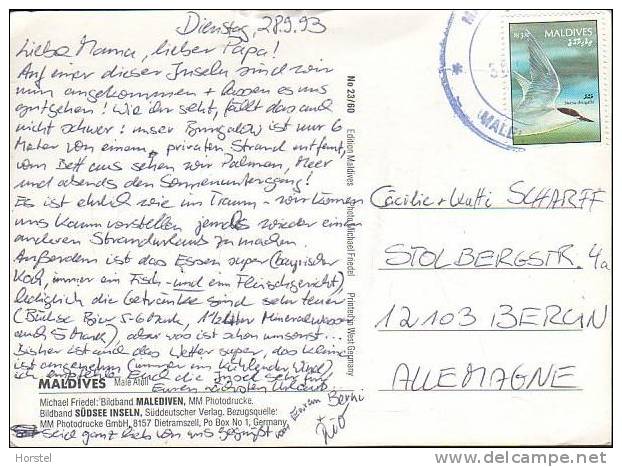 Dienstag, 28.9.93
Liebe Mama, lieber Papa!
Auf einer dieser Inseln sind wir
nun angekommen + lassen es uns
gutgehen! Wie ihr seht, fällt das auch
nicht schwer: unser Bungalow ist nur 6
Meter von einem "privaten" Strand entfernt,
vom Bett aus sehen wir Palmen, Meer
und abends den Sonnenuntergang!
Es ist ehrlich wie im Traum - wir können
uns kaum vorstellen jemals wieder einen
anderen Strandurlaub zu machen.
Außerdem ist das Essen super (bayrischer
Koch, immer ein Fisch- und ein Fleischgericht),
lediglich die Getränke sind sehr teuer
(Büchse Bier 5-6 Mark, 1 Liter Mineralwasser
auch 5 Mark), aber was ist schon umsonst...
Bisher ist auch das Wetter super, das Klima
ist angenehm (immer ein kühlender Wind),
ich Euch die Insel sehr für
Euren nächsten Urlaub...
MALDIVES Male Atoll
Michael Friedel: Bildband MALEDIVEN, MM Photodrucke.
Bildband SÜDSEE INSELN, Süddeutscher Verlag. Bezugsquelle:
MM Photodrucke GmbH, 8157 Dietramszell, Po Box No 1, Germany.
Seid ganz lieb von uns gegrüßt
No 23/60 Edition Maldives Photo Michael Friedel Printed in West Germany
MALDIVES
Cäcilie + Kutti SCHARFF
STOLBERGSTR. 4a
12103 BERLIN
ALLEMAGNE